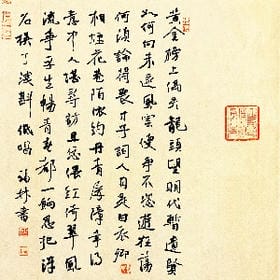 黄金榜上偶失龍頭望明代暫遺賢
如何向未遂風雲便爭不恣遊狂蕩
何須論得喪才子詞人自是白衣卿
相煙花巷陌依約丹青屏障幸有
意中人堪尋訪且恁偎紅倚翠風
流事平生暢青春都一餉忍把浮
名換了淺斟低唱 書